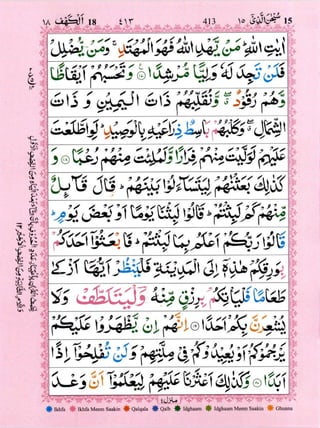 ١٨ الكهف 18 ٤١٣ 413 ١٥ سبحن الذي 15
اٰيٰتِ اللّٰهِ ؕ مَنْ يَّهْدِ اللّٰهُ فَهُوَ الْمُهْتَدِ ۚ وَمَنْ يُّضْلِلْ
فَلَنْ تَجِدَ لَهٗ وَلِيًّا مُّرْشِدًا ﴿۱۷﴾ وَتَحْسَبُهُمْ اَيْقَاظًا
وَّهُمْ رُقُوْدٌ ۖ وَّنُقَلِّبُهُمْ ذَاتَ الْيَمِيْنِ وَ ذَاتَ
الشِّمَالِ ۖ وَكَلْبُهُمْ بَاسِطٌ ذِرَاعَيْهِ بِالْوَصِيْدِ ؕ لَوِ اطَّلَعْتَ
عَلَيْهِمْ لَوَلَّيْتَ مِنْهُمْ فِرَارًا وَّلَمُلِئْتَ مِنْهُمْ رُعْبًا ﴿۱۸﴾ وَ
كَذٰلِكَ بَعَثْنٰهُمْ لِيَتَسَآءَلُوْا بَيْنَهُمْ ؕ قَالَ قَآئِلٌ
مِّنْهُمْ كَمْ لَبِثْتُمْ ؕ قَالُوْا لَبِثْنَا يَوْمًا اَوْ بَعْضَ يَوْمٍ ؕ
قَالُوْا رَبُّكُمْ اَعْلَمُ بِمَا لَبِثْتُمْ ؕ فَابْعَثُوْۤا اَحَدَكُمْ
بِوَرِقِكُمْ هٰذِهٖۤ اِلَى الْمَدِيْنَةِ فَلْيَنْظُرْ اَيُّهَاۤ اَزْكٰى
طَعَامًا فَلْيَاْتِكُمْ بِرِزْقٍ مِّنْهُ وَلْيَتَلَطَّفْ وَلَا
يُشْعِرَنَّ بِكُمْ اَحَدًا ﴿۱۹﴾ اِنَّهُمْ اِنْ يَّظْهَرُوْا عَلَيْكُمْ
يَرْجُمُوْكُمْ اَوْ يُعِيْدُوْكُمْ فِيْ مِلَّتِهِمْ وَلَنْ تُفْلِحُوْۤا اِذًا
اَبَدًا ﴿۲۰﴾ وَكَذٰلِكَ اَعْثَرْنَا عَلَيْهِمْ لِيَعْلَمُوْۤا اَنَّ وَعْدَ
منزل ٤
Ikhfa Ikhfa Meem Saakin Qalqala Qalb Idghaam Idghaam Meem Saakin Ghunna